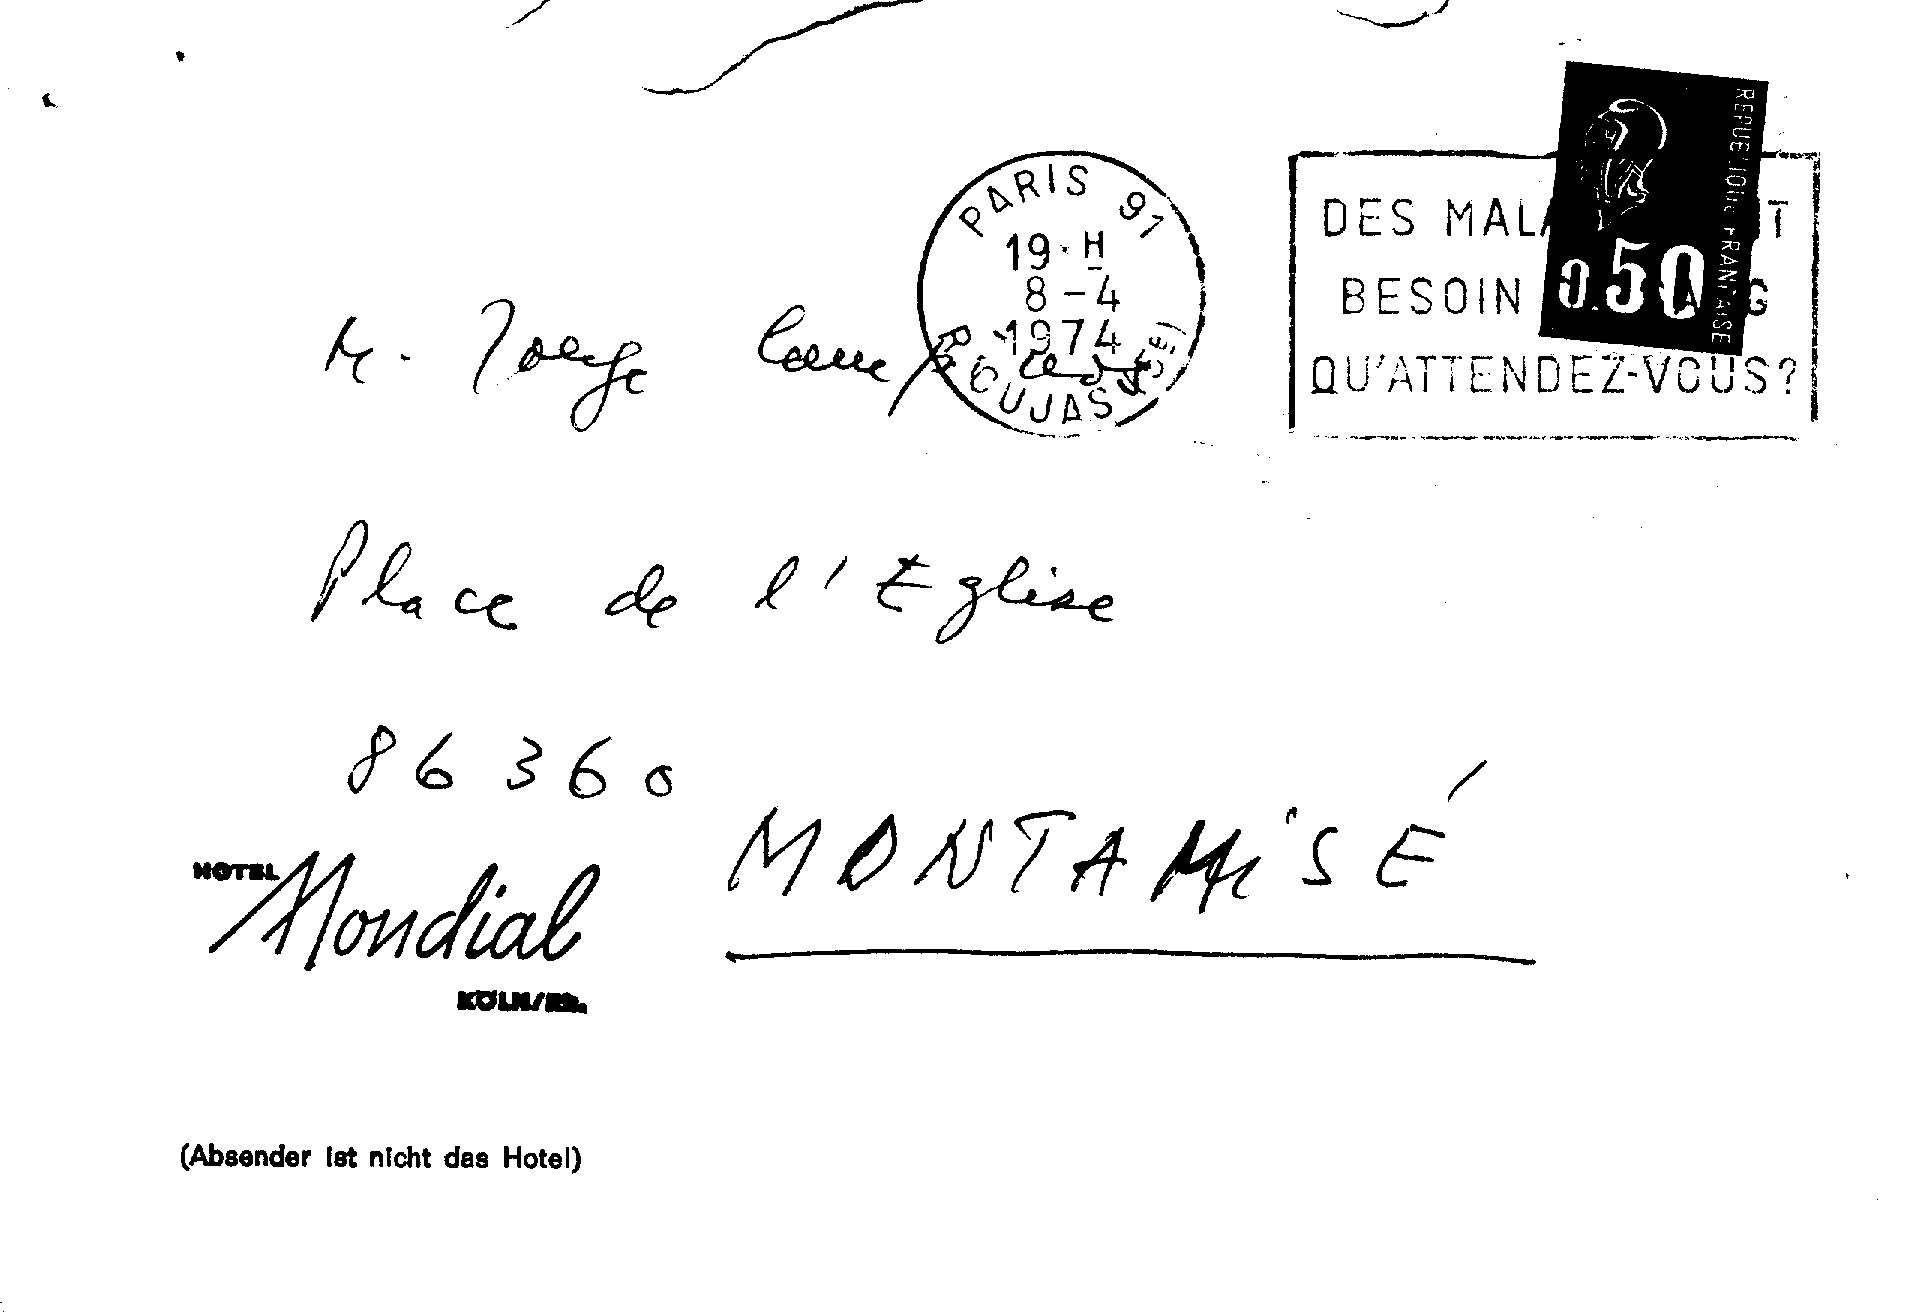 PARIS 91
19 H
8-4
1974
R. BOUJAS (5E)
DES MAL T
BESOIN G
QU'ATTENDEZ-VOUS?
REPUBLIQUE FRANCAISE
0.50
M. Jorge
Place de l'Eglise
86360
MONTAMISÉ
HOTEL
Mondial
KÖLN/Rh.
(Absender ist nicht das Hotel)